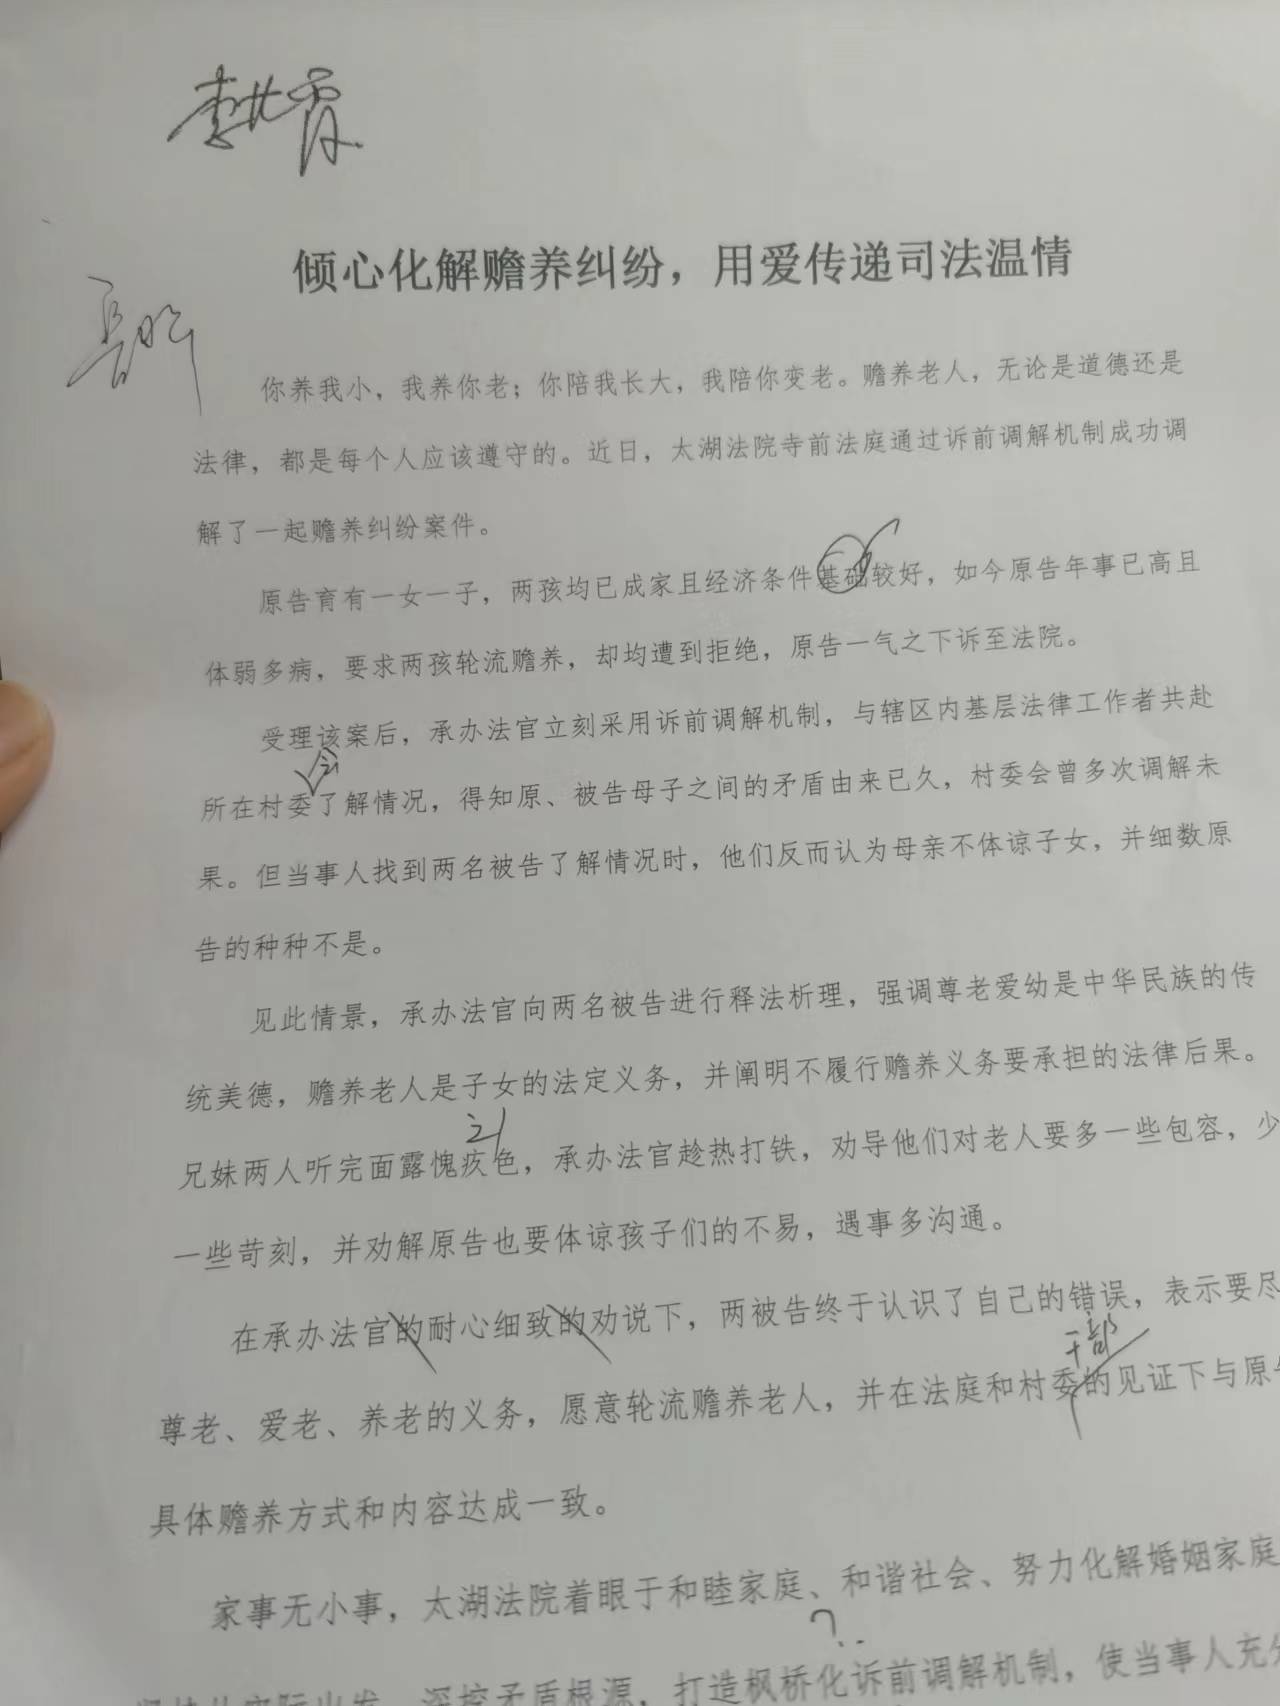 倾心化解赡养纠纷，用爱传递司法温情
你养我小，我养你老；你陪我长大，我陪你变老。赡养老人，无论是道德还是
法律，都是每个人应该遵守的。近日，太湖法院寺前法庭通过诉前调解机制成功调
解了一起赡养纠纷案件。
原告育有一女一子，两孩均已成家且经济条件基础较好，如今原告年事已高且
体弱多病，要求两孩轮流赡养，却均遭到拒绝，原告一气之下诉至法院。
受理该案后，承办法官立刻采用诉前调解机制，与辖区内基层法律工作者共赴
会
所在村委了解情况，得知原、被告母子之间的矛盾由来已久，村委会曾多次调解未
果。但当事人找到两名被告了解情况时，他们反而认为母亲不体谅子女，并细数原
告的种种不是。
见此情景，承办法官向两名被告进行释法析理，强调尊老爱幼是中华民族的传
统美德，赡养老人是子女的法定义务，并阐明不履行赡养义务要承担的法律后果。
之
兄妹两人听完面露愧疚色，承办法官趁热打铁，劝导他们对老人要多一些包容，少
一些苛刻，并劝解原告也要体谅孩子们的不易，遇事多沟通。
在承办法官的耐心细致的劝说下，两被告终于认识了自己的错误，表示要尽
干部
尊老、爱老、养老的义务，愿意轮流赡养老人，并在法庭和村委的见证下与原告
具体赡养方式和内容达成一致。
家事无小事，太湖法院着眼于和睦家庭、和谐社会、努力化解婚姻家庭
?
坚持从实际出发，深挖矛盾根源，打造枫桥化诉前调解机制，使当事人充分